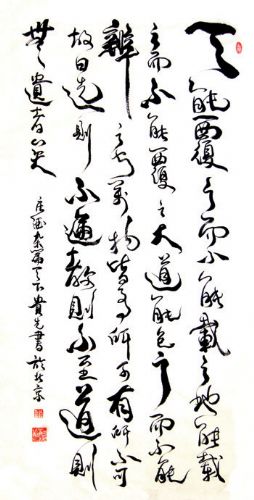 天能覆之而不能載之地能載
之而不能覆之大道能包之而不能
辯之知萬物皆有所可有所不可
故曰選則不遍教則不至道則
無遺者矣
雜篇天下貴先書於北京